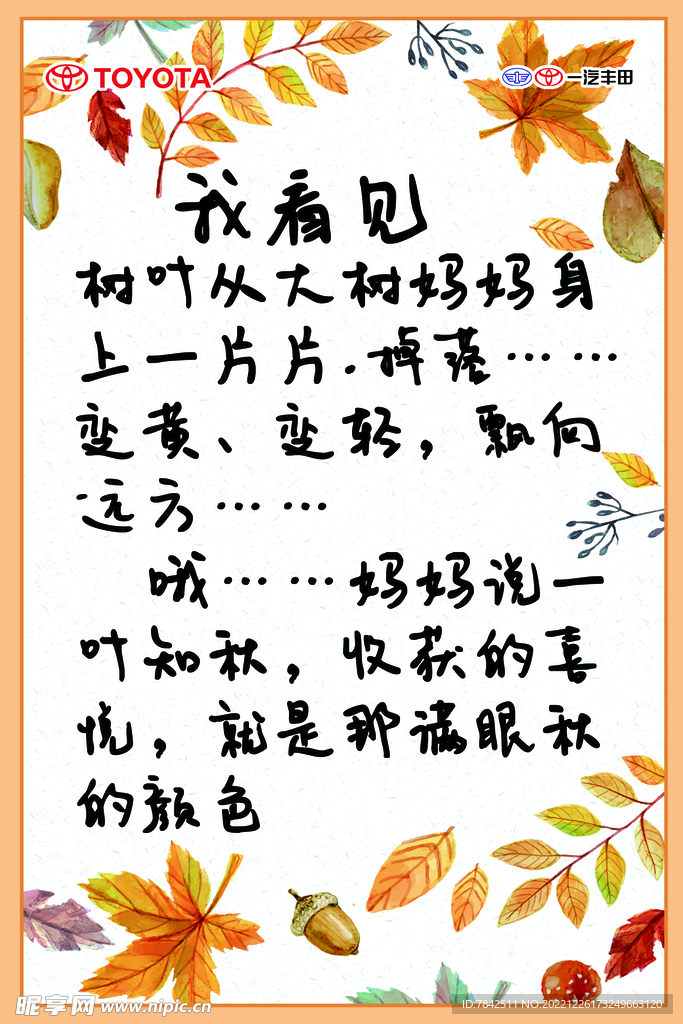 TOYOTA 一汽丰田
我看见
树叶从大树妈妈身
上一片片.掉落……
变黄、变轻，飘向
远方……
哦……妈妈说一
叶知秋，收获的喜
悦，就是那满眼秋
的颜色
昵享网 www.nipic.cn
ID:7842511 NO:20221226173249663120